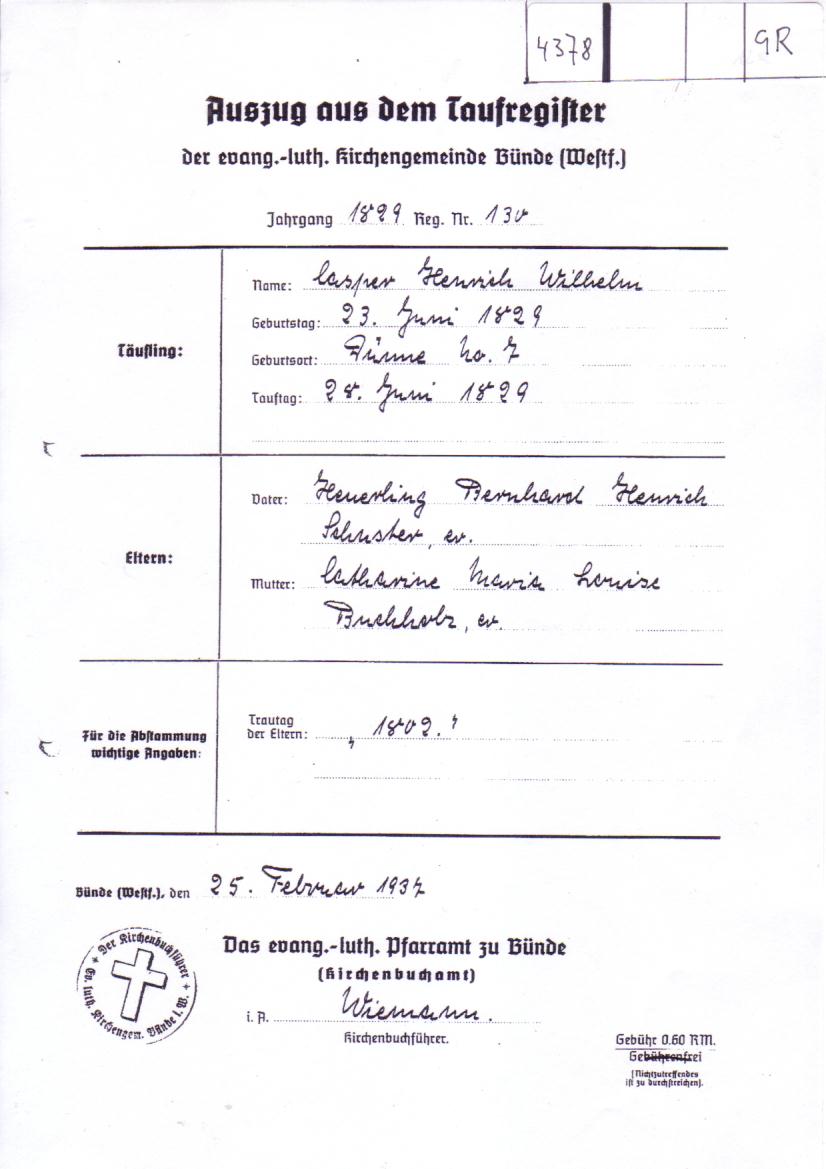 4378 GR
Auszug aus dem Taufregister
der evang.-luth. Kirchengemeinde Bünde (Westf.)
Jahrgang 1829 Reg. Nr. 130
Täufling:
Name: Casper Henrich Wilhelm
Geburtstag: 23. Juni 1829
Geburtsort: Dünne No. 7
Tauftag: 28. Juni 1829
Eltern:
Vater: Heuerling Bernhard Henrich
Schuster, ev.
Mutter: Catharine Maria Louise
Buchholz, ev.
Für die Abstammung
wichtige Angaben:
Trautag
der Eltern: 1802.
Bünde (Westf.), den 25. Februar 1937
Das evang.-luth. Pfarramt zu Bünde
(Kirchenbuchamt)
i. A. Wiemann.
Kirchenbuchführer.
Der Kirchenbuchführer
Ev. luth. Kirchengem. Bünde i. W.
Gebühr 0.60 RM.
Gebührenfrei
(Nichtzutreffendes
ist zu durchstreichen).